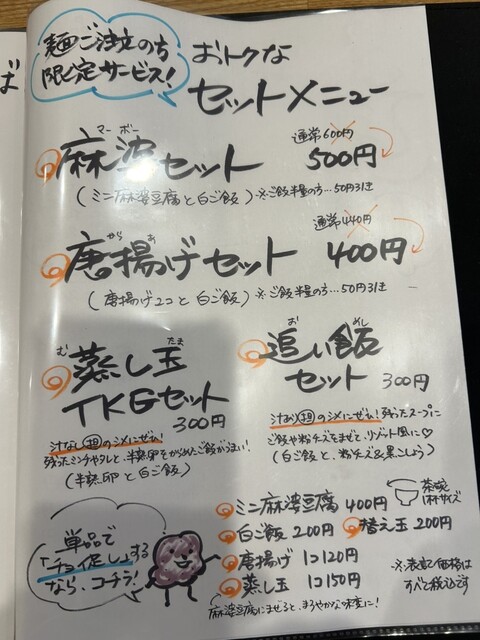 ば
麺ご注文の方
限定サービス!
おトクな
セットメニュー
マーボー
麻婆セット
通常600円
500円
(ミニ麻婆豆腐と白ご飯)※ご飯半量の方…50円引き
から あ
唐揚げセット
通常440円
400円
(唐揚げ2コと白ご飯)※ご飯半量の方…50円引き
む たま
蒸し玉
TKGセット
300円
汁なし担のシメにぜひ!
残ったミンチやタレと、半熟卵をからめたご飯が旨い!
(半熟卵と白ご飯)
お めし
追い飯
セット
300円
汁あり担のシメにぜひ!残ったスープに
ご飯や粉チーズをまぜて、リゾット風に♡
(白ご飯と、粉チーズ&黒こしょう)
単品で
「チョイ足し」する
なら、コチラ!
ミニ麻婆豆腐 400円
茶碗
1杯サイズ
白ご飯 200円
替え玉 200円
唐揚げ 1コ120円
蒸し玉 1コ150円
麻婆豆腐にまぜると、まろやかな味変に!
※表記価格は
すべて税込です